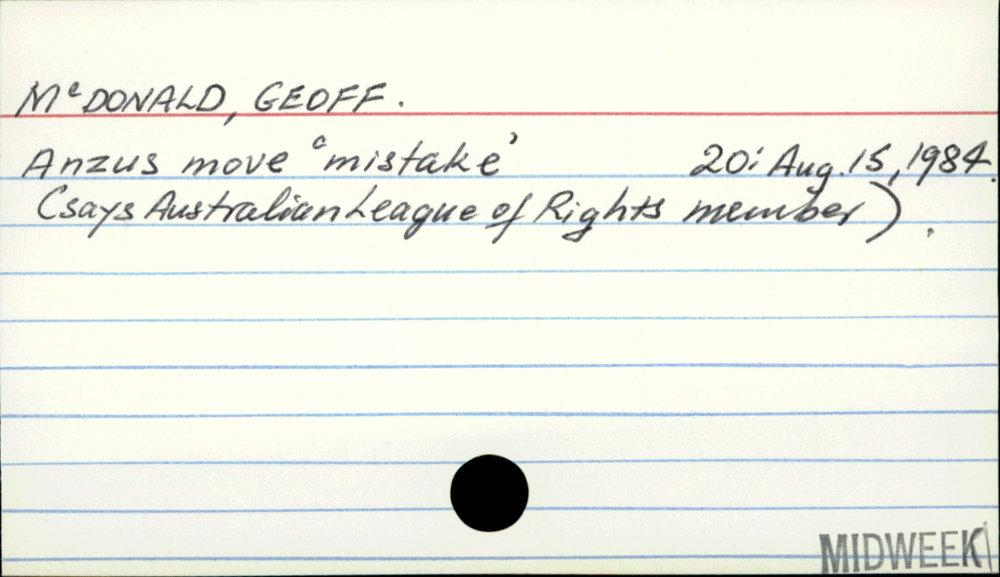 McDONALD, GEOFF.
Anzus move 'mistake' 20: Aug. 15, 1984.
(says Australian League of Rights member).
MIDWEEK